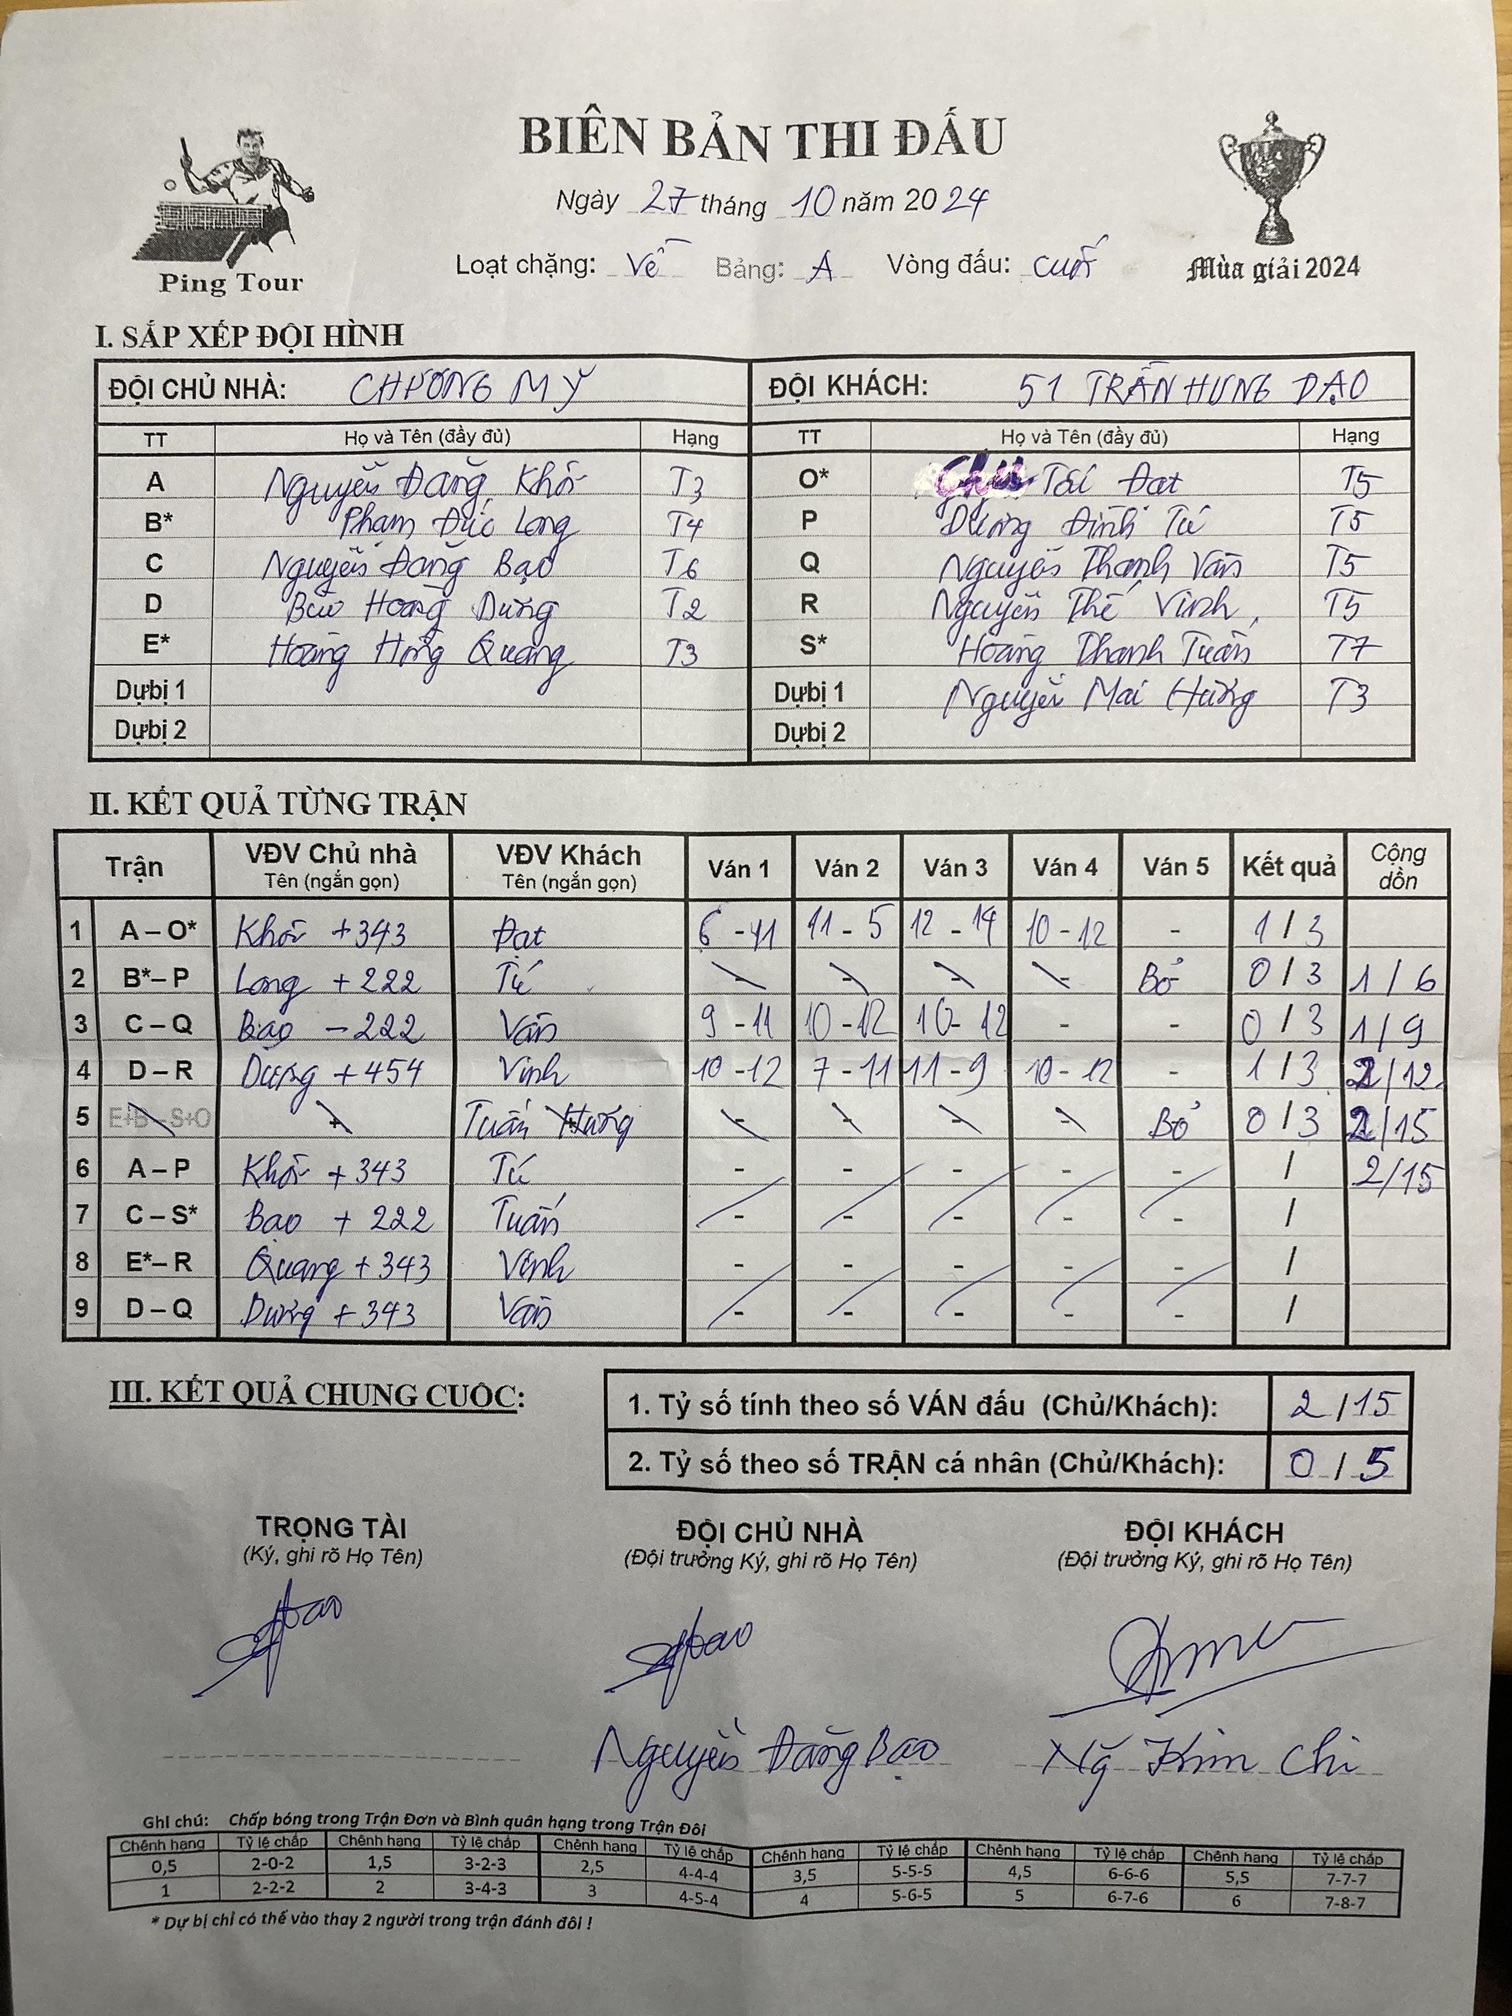 BIÊN BẢN THI ĐẤU
Ngày 27 tháng 10 năm 2024
Ping Tour
Loạt chặng: Về Bảng: A Vòng đấu: cuối
Mùa giải 2024
I. SẮP XẾP ĐỘI HÌNH
ĐỘI CHỦ NHÀ: CHƯƠNG MỸ ĐỘI KHÁCH: 51 TRẦN HƯNG ĐẠO
TT Họ và Tên (đầy đủ) Hạng TT Họ và Tên (đầy đủ) Hạng
A Nguyễn Đăng Khôi T3 O* Chu Tái Đạt T5
B* Phạm Đức Long T4 P Dương Đình Tú T5
C Nguyễn Đăng Bạo T6 Q Nguyễn Thanh Vân T5
D Hoàng Dương T2 R Nguyễn Thế Vinh T5
E* Hoàng Hồng Quang T3 S* Hoàng Thanh Tuấn T7
Dựbị 1 Dựbị 1 Nguyễn Mai Hương T3
Dựbị 2 Dựbị 2
II. KẾT QUẢ TỪNG TRẬN
Trận VĐV Chủ nhà Tên (ngắn gọn) VĐV Khách Tên (ngắn gọn) Ván 1 Ván 2 Ván 3 Ván 4 Ván 5 Kết quả Cộng dồn
1 A – O* Khôi +343 Đạt 6 - 11 11 - 5 12 - 14 10 - 12 - 1 / 3
2 B* – P Long +222 Tú - - - - Bỏ 0 / 3 1 / 6
3 C – Q Bạo -222 Vân 9 - 11 10 - 12 10 - 12 - - 0 / 3 1/9
4 D – R Dương +454 Vinh 10 - 12 7 - 11 11 - 9 10 - 12 - 1 / 3 2/12
5 E+B – S+O + Tuấn + Hương - - - - Bỏ 0 / 3 2/15
6 A – P Khôi +343 Tú - - - - - / 2/15
7 C – S* Bạo +222 Tuấn - - - - - /
8 E* – R Quang +343 Vinh - - - - - /
9 D – Q Dương +343 Vân - - - - - /
III. KẾT QUẢ CHUNG CUỘC:
1. Tỷ số tính theo số VÁN đấu (Chủ/Khách): 2 / 15
2. Tỷ số theo số TRẬN cá nhân (Chủ/Khách): 0 / 5
TRỌNG TÀI ĐỘI CHỦ NHÀ ĐỘI KHÁCH
(Ký, ghi rõ Họ Tên) (Đội trưởng Ký, ghi rõ Họ Tên) (Đội trưởng Ký, ghi rõ Họ Tên)
Nguyễn Đăng Bạo Ng̃ Kim Chi
Ghi chú: Chấp bóng trong Trận Đơn và Bình quân hạng trong Trận Đôi
Chênh hạng Tỷ lệ chấp Chênh hạng Tỷ lệ chấp Chênh hạng Tỷ lệ chấp Chênh hạng Tỷ lệ chấp Chênh hạng Tỷ lệ chấp Chênh hạng Tỷ lệ chấp
0,5 2-0-2 1,5 3-2-3 2,5 4-4-4 3,5 5-5-5 4,5 6-6-6 5,5 7-7-7
1 2-2-2 2 3-4-3 3 4-5-4 4 5-6-5 5 6-7-6 6 7-8-7
* Dự bị chỉ có thể vào thay 2 người trong trận đánh đôi !